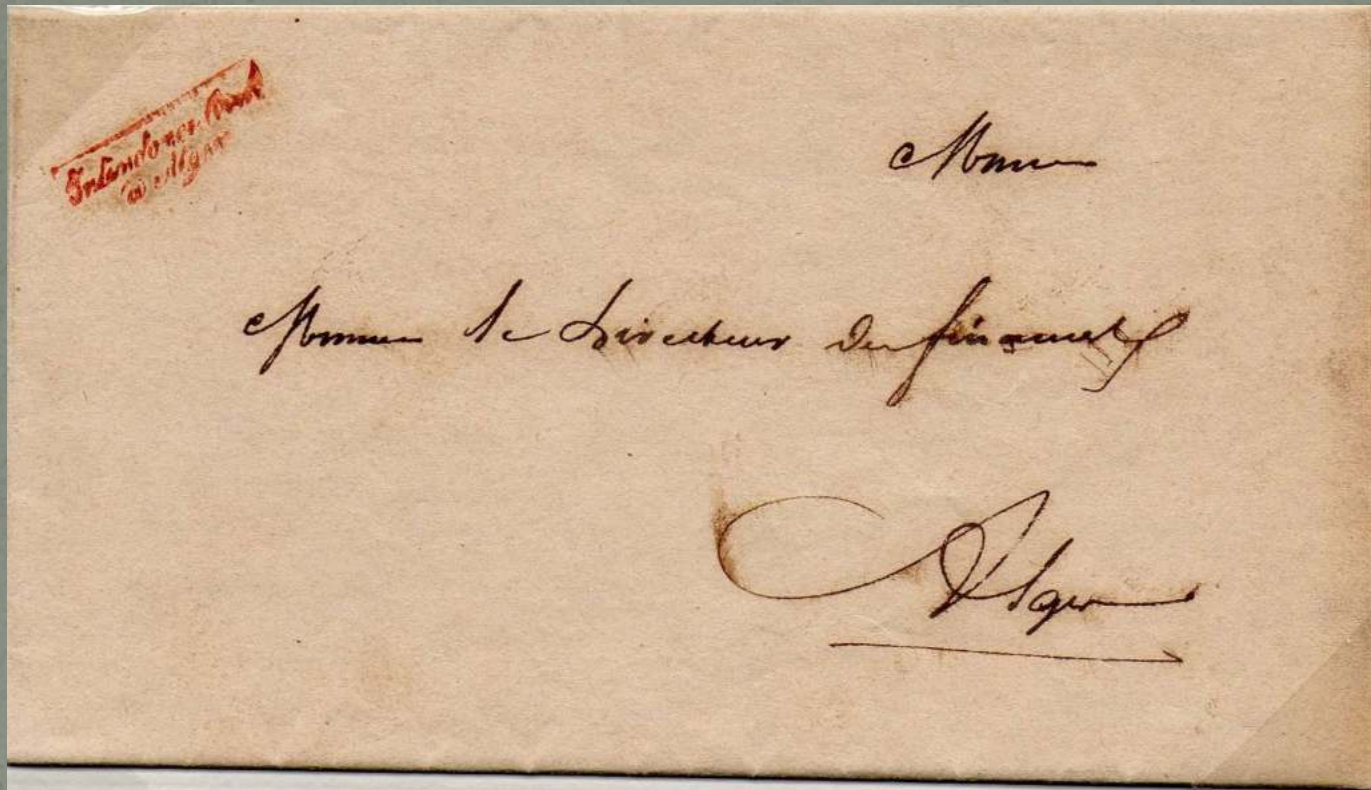 Intendance Civile
à Alger
Monsieur
Monsieur le Directeur des finances
Alger